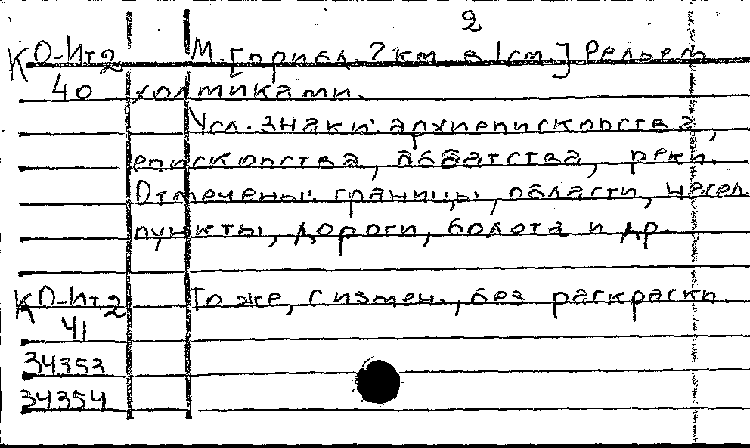 2
К О-Ит2 М. [прибл. 7 км в 1 см.] Рельеф
40 холмиками.
Усл. знаки: архиепископства,
епископства, аббатства, реки.
Отмечены: границы, области, насел.
пункты, дороги, болота и др.
К О-Ит2 То же, с измен., без раскраски
41
34353
34354